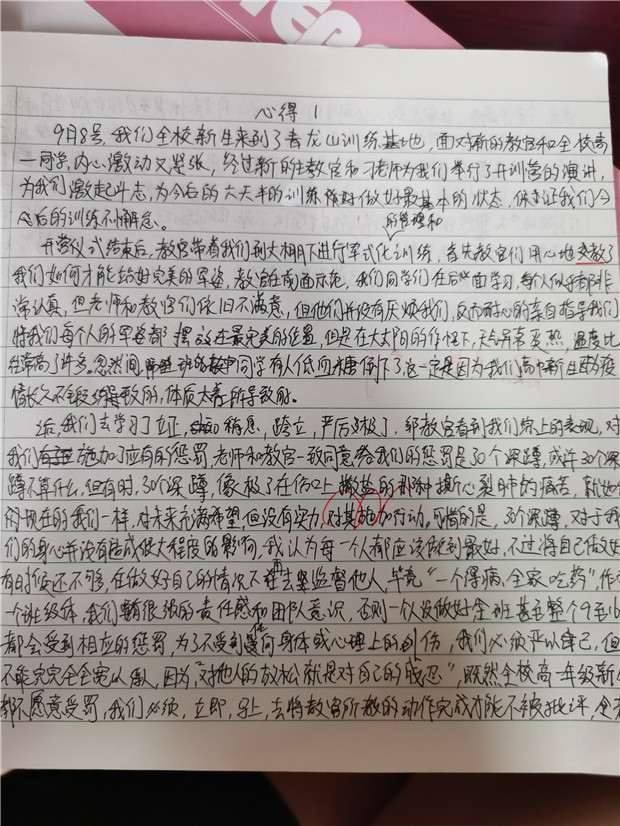 心得 1
9月8号,我们全校新生来到了青龙山训练基地,面对新的教官和全校高
一同学,内心激动又紧张,经过新的教官和老师为我们举行了开训营的演讲,
为我们激起斗志,为今后的六天半的训练做好最基本的状态,保证我们今
后的训练不懈怠。
的管理和
开营仪式结束后,教官带着我们到大棚下进行军式化训练,首先教官们用心地教
我们如何才能给好完美的军姿,教官在前面示范,我们同学们在后面学习,每个人似乎都非
常认真,但老师和教官们依旧不满意,但他们并没有厌烦我们,反而耐心的亲自指导我们
将我们每个人的军姿都摆放在最完美的位置,但是在大太阳的作况下,天气异常炎热,温度比
往常高了许多,忽然间,同学有人低血糖倒下了,这一定是因为我们高中新生因为疫
情长久不锻炼导致的,体质太差所导致的。
之后,我们去学习了立正,稍息,跨立,严厉极了,郭教官看到我们综上的表现,对
我们施加了应有的惩罚,老师和教官一致同意给我们的惩罚是30个深蹲,或许30个深
蹲不算什么,但有时,30个深蹲,像极了在伤口上撒盐的那种撕心裂肺的痛苦,就如
同现在的我们一样,对未来充满希望,但没有实力,对其施加行动。可惜的是,30个深蹲,对于我
们的身心并没有造成很大程度的影响,我认为每一个人都应该做到最好,不过将自己做好
有时候还不够,在做好自己的情况下再去监督他人,毕竟“一个得病,全家吃药”,作
一个班级体,我们有很强的责任感和团队意识,否则一个人没做好全班甚至整个9至16
都会受到相应的惩罚,为了不受到任何身体或心理上的创伤,我们必须严以律己,但
不能完完全全宽以待人,因为,“对他人的放松就是对自己的残忍”,既然全校高一年级新
都不愿意受罚,我们必须,立即,马上,去将教官所教的动作完成才能不被批评,令